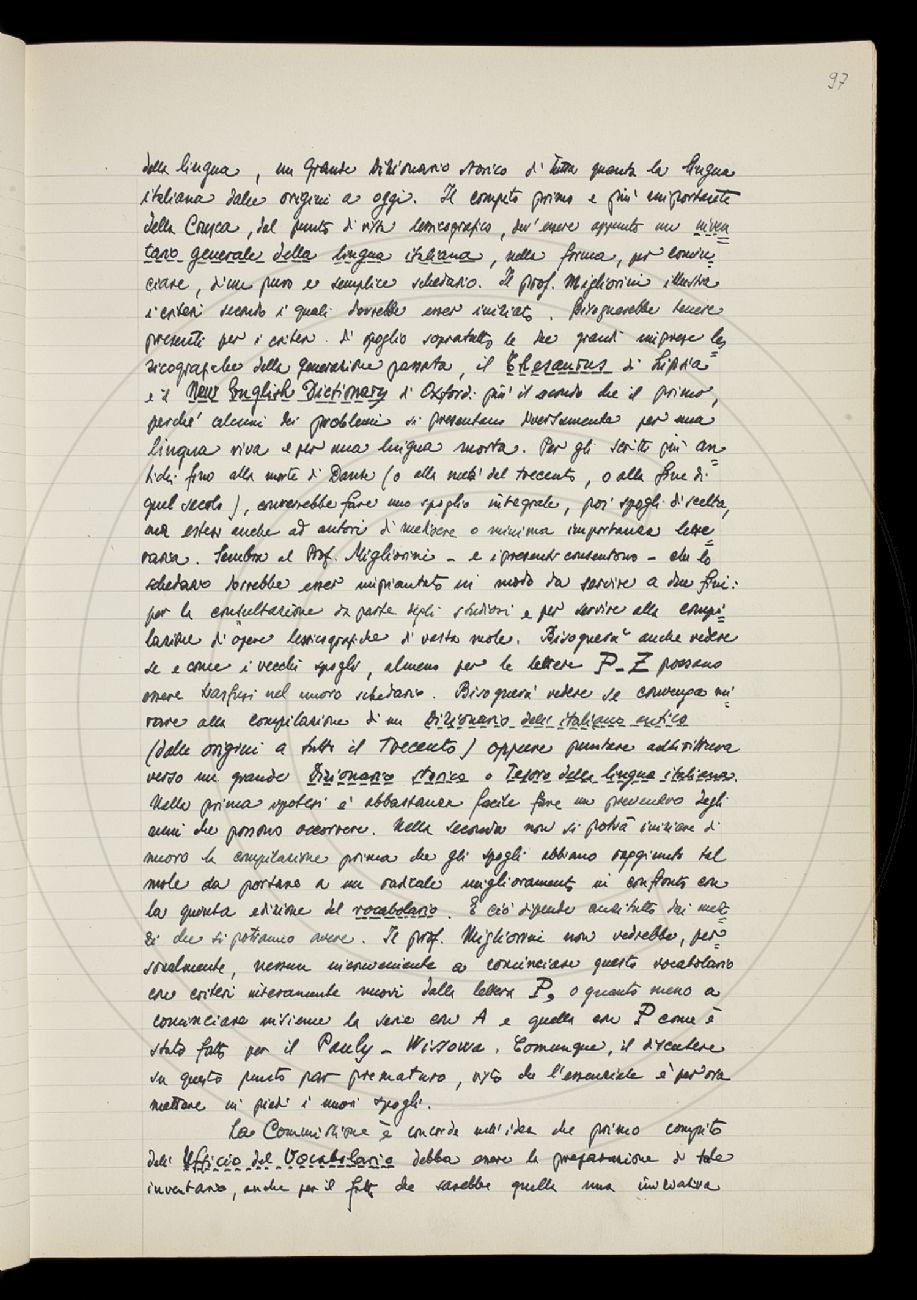 97
della lingua, un grande Dizionario storico di tutta quanta la lingua
italiana dalle origini a oggi. Il compito primo e più importante
della Crusca, dal punto di vista lessicografico, dev'essere appunto un inven=
tario generale della lingua italiana, nella forma, per comin=
ciare, d'un puro e semplice schedario. Il prof. Migliorini illustra
i criteri secondo i quali dovrebbe esser iniziato. Bisognerebbe tenere
presenti per i criteri di spoglio soprattutto le due grandi imprese les=
sicografiche della generazione passata, il Thesaurus di Lipsia
e il New English Dictionary di Oxford: più il secondo che il primo,
perché alcuni dei problemi si presentano diversamente per una
lingua viva e per una lingua morta. Per gli scritti più an=
tichi fino alla morte di Dante (o alla metà del trecento, o alla fine di
quel secolo), converrebbe fare uno spoglio integrale, poi spogli di scelta,
ma estesi anche ad autori di mediocre o minima importanza lette=
raria. Sembra al Prof. Migliorini – e i presenti consentono – che lo
schedario dovrebbe esser impiantato in modo da servire a due fini:
per la consultazione da parte degli studiosi e per servire alla compi=
lazione di opere lessicografiche di vasta mole. Bisognerà anche vedere
se e come i vecchi spogli, almeno per le lettere P-Z possano
essere trasfusi nel nuovo schedario. Bisognerà vedere se convenga mi=
rare alla compilazione di un Dizionario dell'italiano antico
(dalle origini a tutto il Trecento) oppure puntare addirittura
verso un grande Dizionario storico o Tesoro della lingua italiana.
Nella prima ipotesi è abbastanza facile fare un preventivo degli
anni che possono occorrere. Nella seconda non si potrà iniziare di
nuovo la compilazione prima che gli spogli abbiano raggiunto tal
mole da portare a un radicale miglioramento in confronto con
la quinta edizione del vocabolario. E ciò dipende anzitutto dai mez=
zi che si potranno avere. Il prof. Migliorini non vedrebbe, per=
sonalmente, nessun inconveniente a cominciare questo vocabolario
con criteri interamente nuovi dalla lettera P, o quanto meno a
cominciare insieme la serie con A e quella con P come è
stato fatto per il Pauly-Wissowa. Comunque, il discutere
su questo punto par prematuro, visto che l'essenziale è per ora
mettere in piedi i nuovi spogli.
La Commissione è concorde nell'idea che primo compito
dell'Ufficio del Vocabolario debba essere la preparazione di tale
inventario, anche per il fatto che sarebbe quella una iniziativa